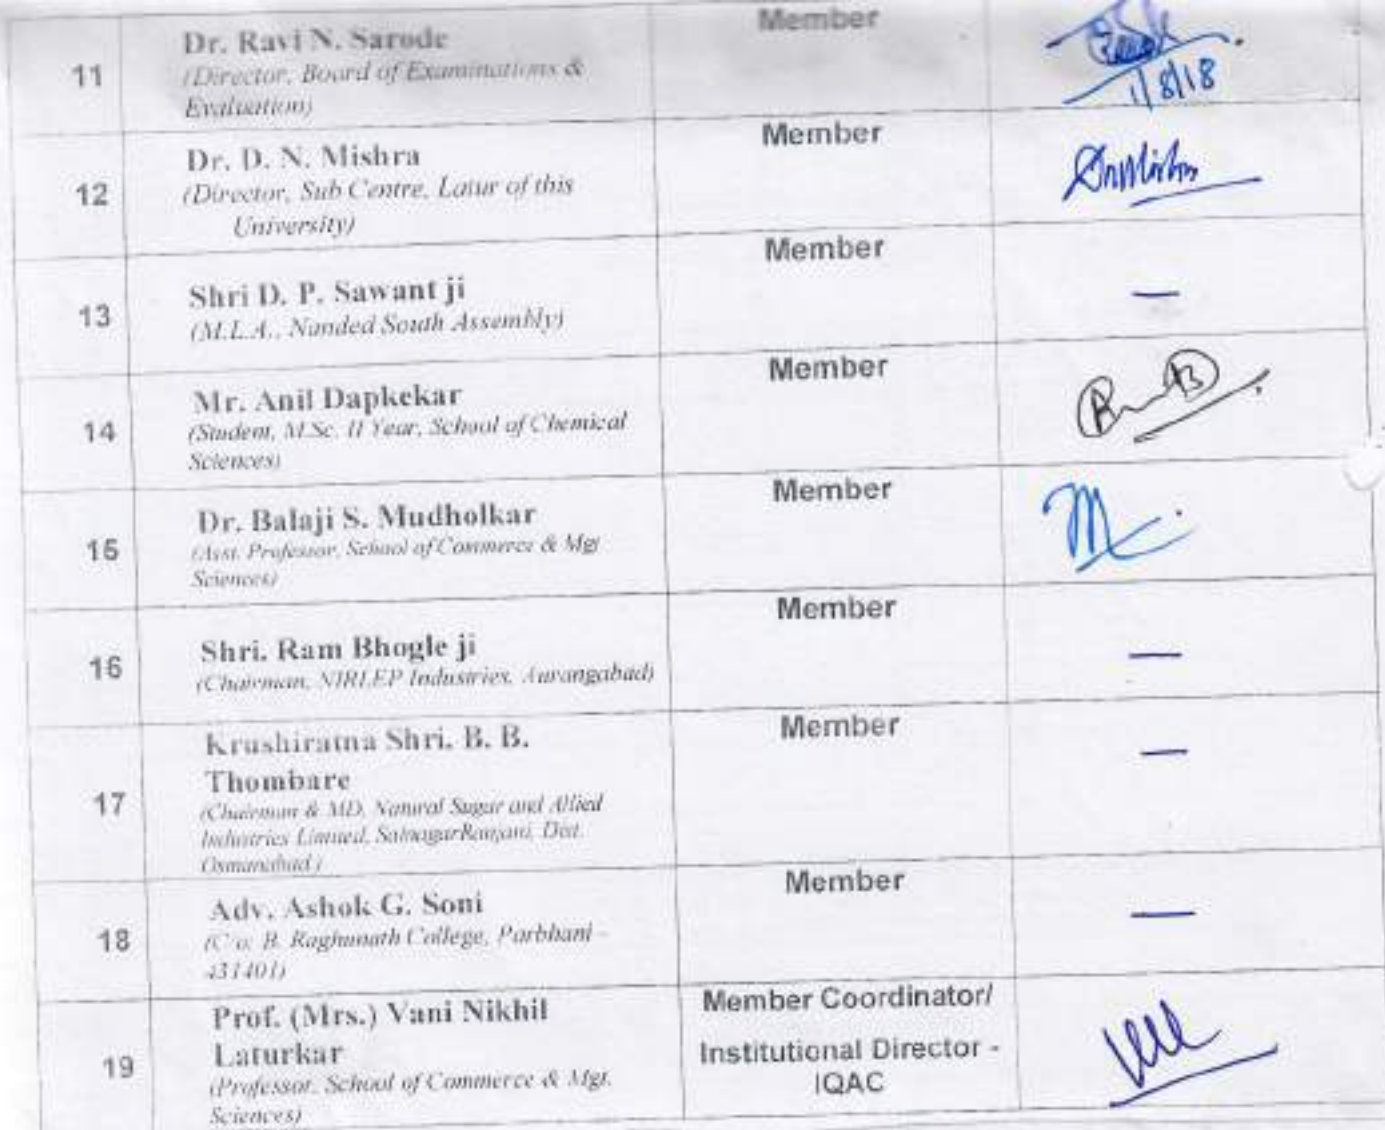 Member
11
Dr. Ravi N. Sarode
(Director, Board of Examinations &
Evaluation)
1/8/18
Member
12
Dr. D. N. Mishra
(Director, Sub Centre, Latur of this
University)
Member
13
Shri D. P. Sawant ji
(M.L.A., Nanded South Assembly)
—
Member
14
Mr. Anil Dapkekar
(Student, M.Sc. II Year, School of Chemical
Sciences)
Member
15
Dr. Balaji S. Mudholkar
(Asst. Professor, School of Commerce & Mgt
Sciences)
Member
16
Shri. Ram Bhogle ji
(Chairman, NIRLEP Industries, Aurangabad)
—
Member
17
Krushiratna Shri. B. B.
Thombare
(Chairman & MD, Natural Sugar and Allied
Industries Limited, Dist.
Osmanabad)
—
Member
18
Adv. Ashok G. Soni
(C/o. B. Raghunath College, Parbhani -
431401)
—
19
Prof. (Mrs.) Vani Nikhil
Laturkar
(Professor, School of Commerce & Mgt.
Sciences)
Member Coordinator/
Institutional Director -
IQAC